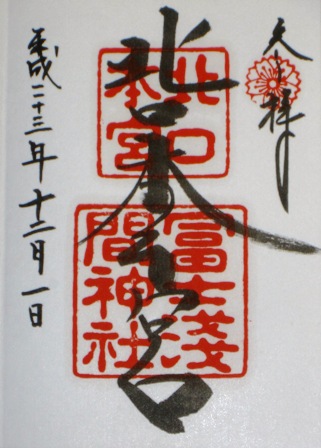 奉拝
北口本宮
北口
本宮
冨士淺
間神社
平成二十三年十二月一日